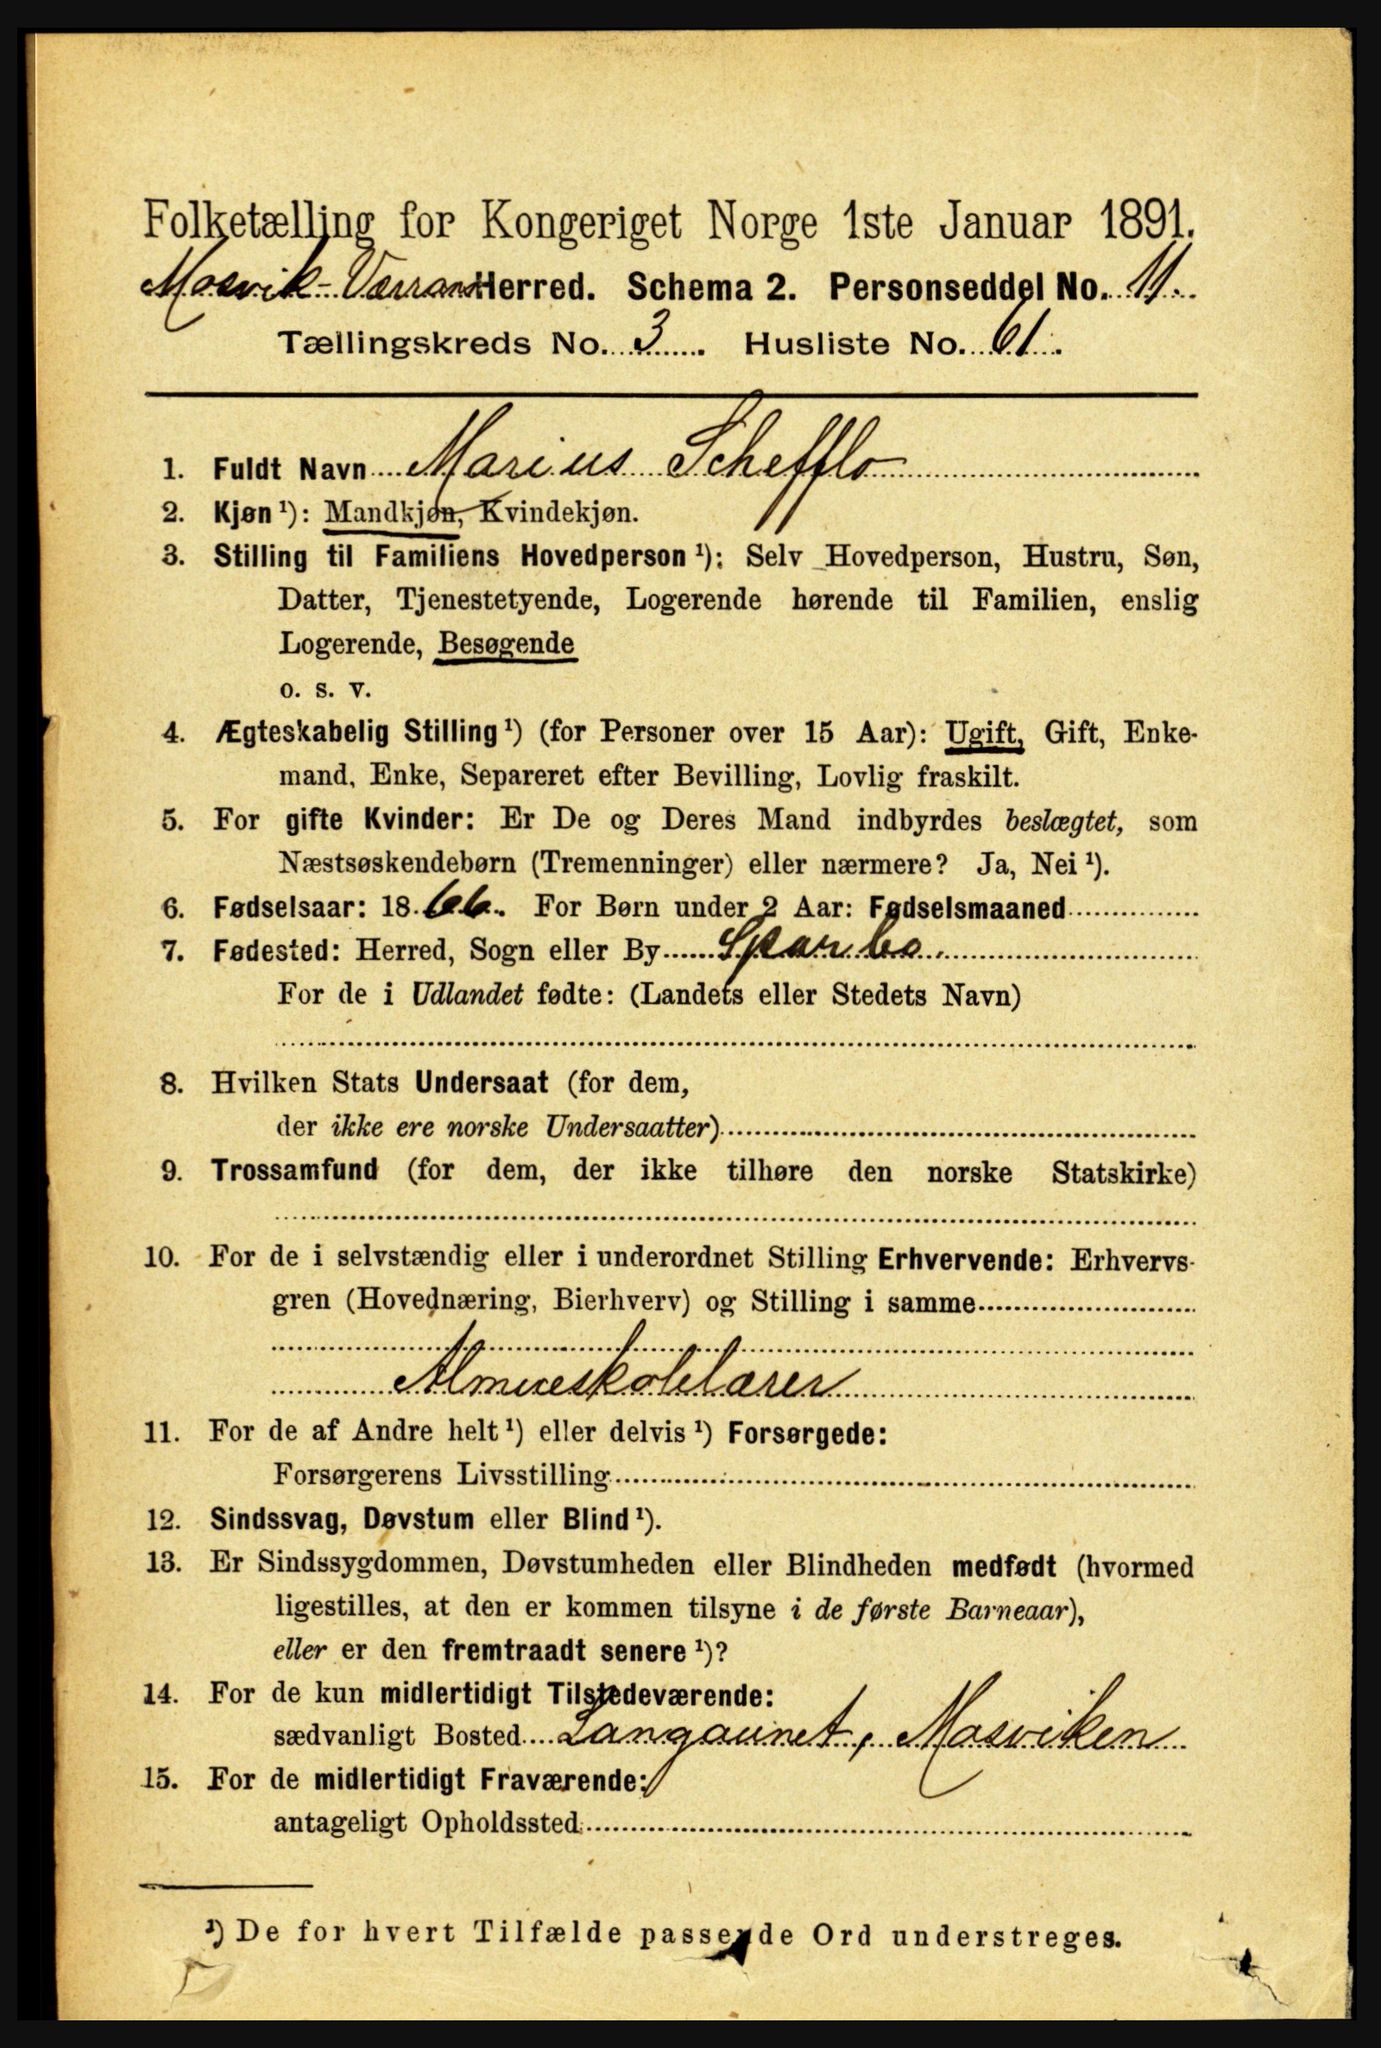 Folketælling for Kongeriget Norge 1ste Januar 1891.
Mosvik-Værran Herred. Schema 2. Personseddel No. 11.
Tællingskreds No. 3. Husliste No. 61.
1. Fuldt Navn Marius Schefflo
2. Kjøn ¹): Mandkjøn, Kvindekjøn.
3. Stilling til Familiens Hovedperson ¹): Selv Hovedperson, Hustru, Søn,
Datter, Tjenestetyende, Logerende hørende til Familien, enslig
Logerende, Besøgende
o. s. v.
4. Ægteskabelig Stilling ¹) (for Personer over 15 Aar): Ugift, Gift, Enke-
mand, Enke, Separeret efter Bevilling, Lovlig fraskilt.
5. For gifte Kvinder: Er De og Deres Mand indbyrdes beslægtet, som
Næstsøskendebørn (Tremenninger) eller nærmere? Ja, Nei ¹).
6. Fødselsaar: 1866. For Børn under 2 Aar: Fødselsmaaned
7. Fødested: Herred, Sogn eller By Sparbo.
For de i Udlandet fødte: (Landets eller Stedets Navn)
8. Hvilken Stats Undersaat (for dem,
der ikke ere norske Undersaatter)
9. Trossamfund (for dem, der ikke tilhøre den norske Statskirke)
10. For de i selvstændig eller i underordnet Stilling Erhvervende: Erhvervs-
gren (Hovednæring, Bierhverv) og Stilling i samme
Almueskolelærer
11. For de af Andre helt ¹) eller delvis ¹) Forsørgede:
Forsørgerens Livsstilling
12. Sindssvag, Døvstum eller Blind ¹).
13. Er Sindssygdommen, Døvstumheden eller Blindheden medfødt (hvormed
ligestilles, at den er kommen tilsyne i de første Barneaar),
eller er den fremtraadt senere ¹)?
14. For de kun midlertidigt Tilstedeværende:
sædvanligt Bosted Langaunet, Mosviken
15. For de midlertidigt Fraværende:
antageligt Opholdssted
¹) De for hvert Tilfælde passende Ord understreges.